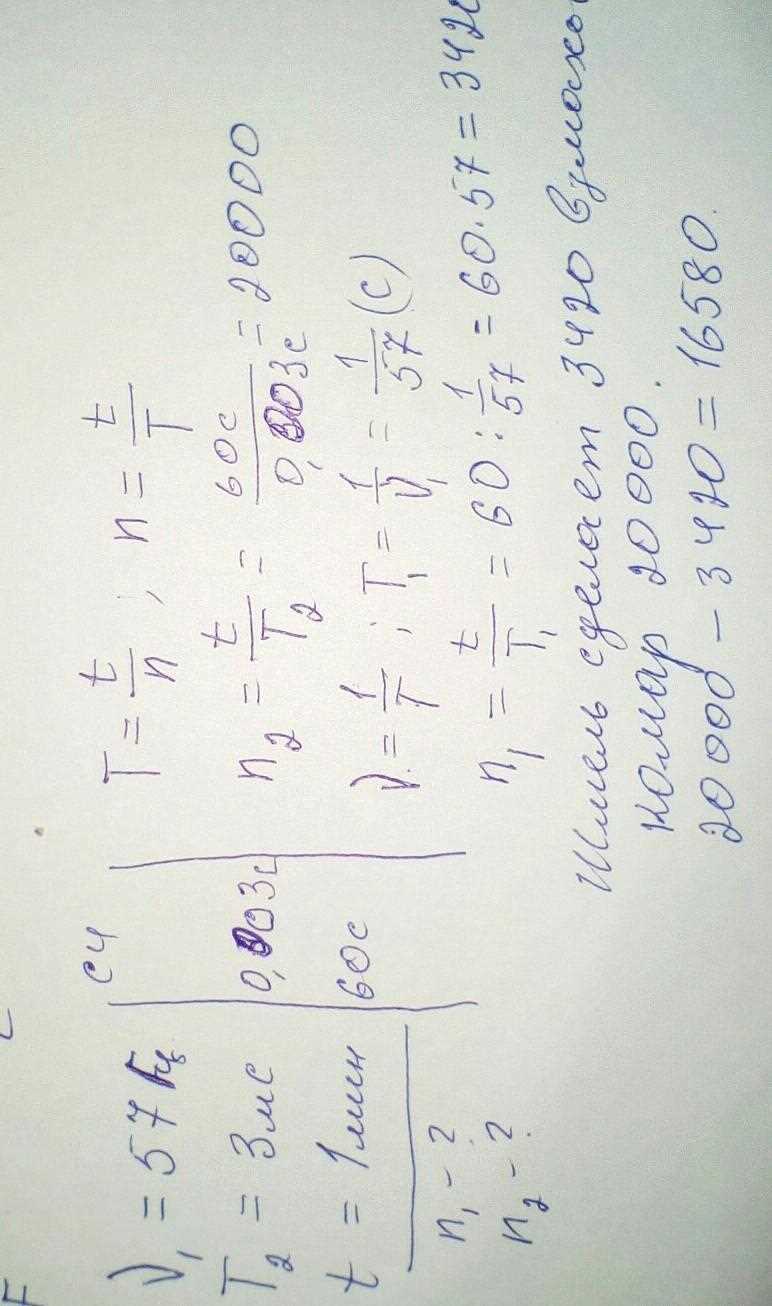 СИ
ν₁ = 57 Гц
T₂ = 3 мс | 0,003 с
t = 1 мин | 60 с
n₁ - ?
n₂ - ?
T = t/n ; n = t/T
n₂ = t/T₂ = 60с/0,003с = 20000
ν = 1/T ; T₁ = 1/ν₁ = 1/57 (с)
n₁ = t/T₁ = 60 : 1/57 = 60·57 = 342
Шмель сделает 3420 взмахо
комар 20000.
20000 - 3420 = 16580.